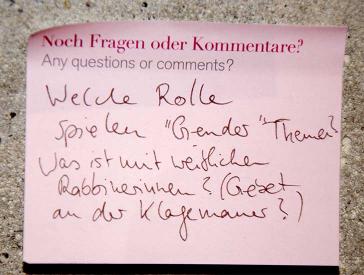 Noch Fragen oder Kommentare?
Any questions or comments?
Welche Rolle
spielen "Gender" Themen?
Was ist mit weiblichen
Rabbinerinnen? (Gebet
an der Klagemauer?)